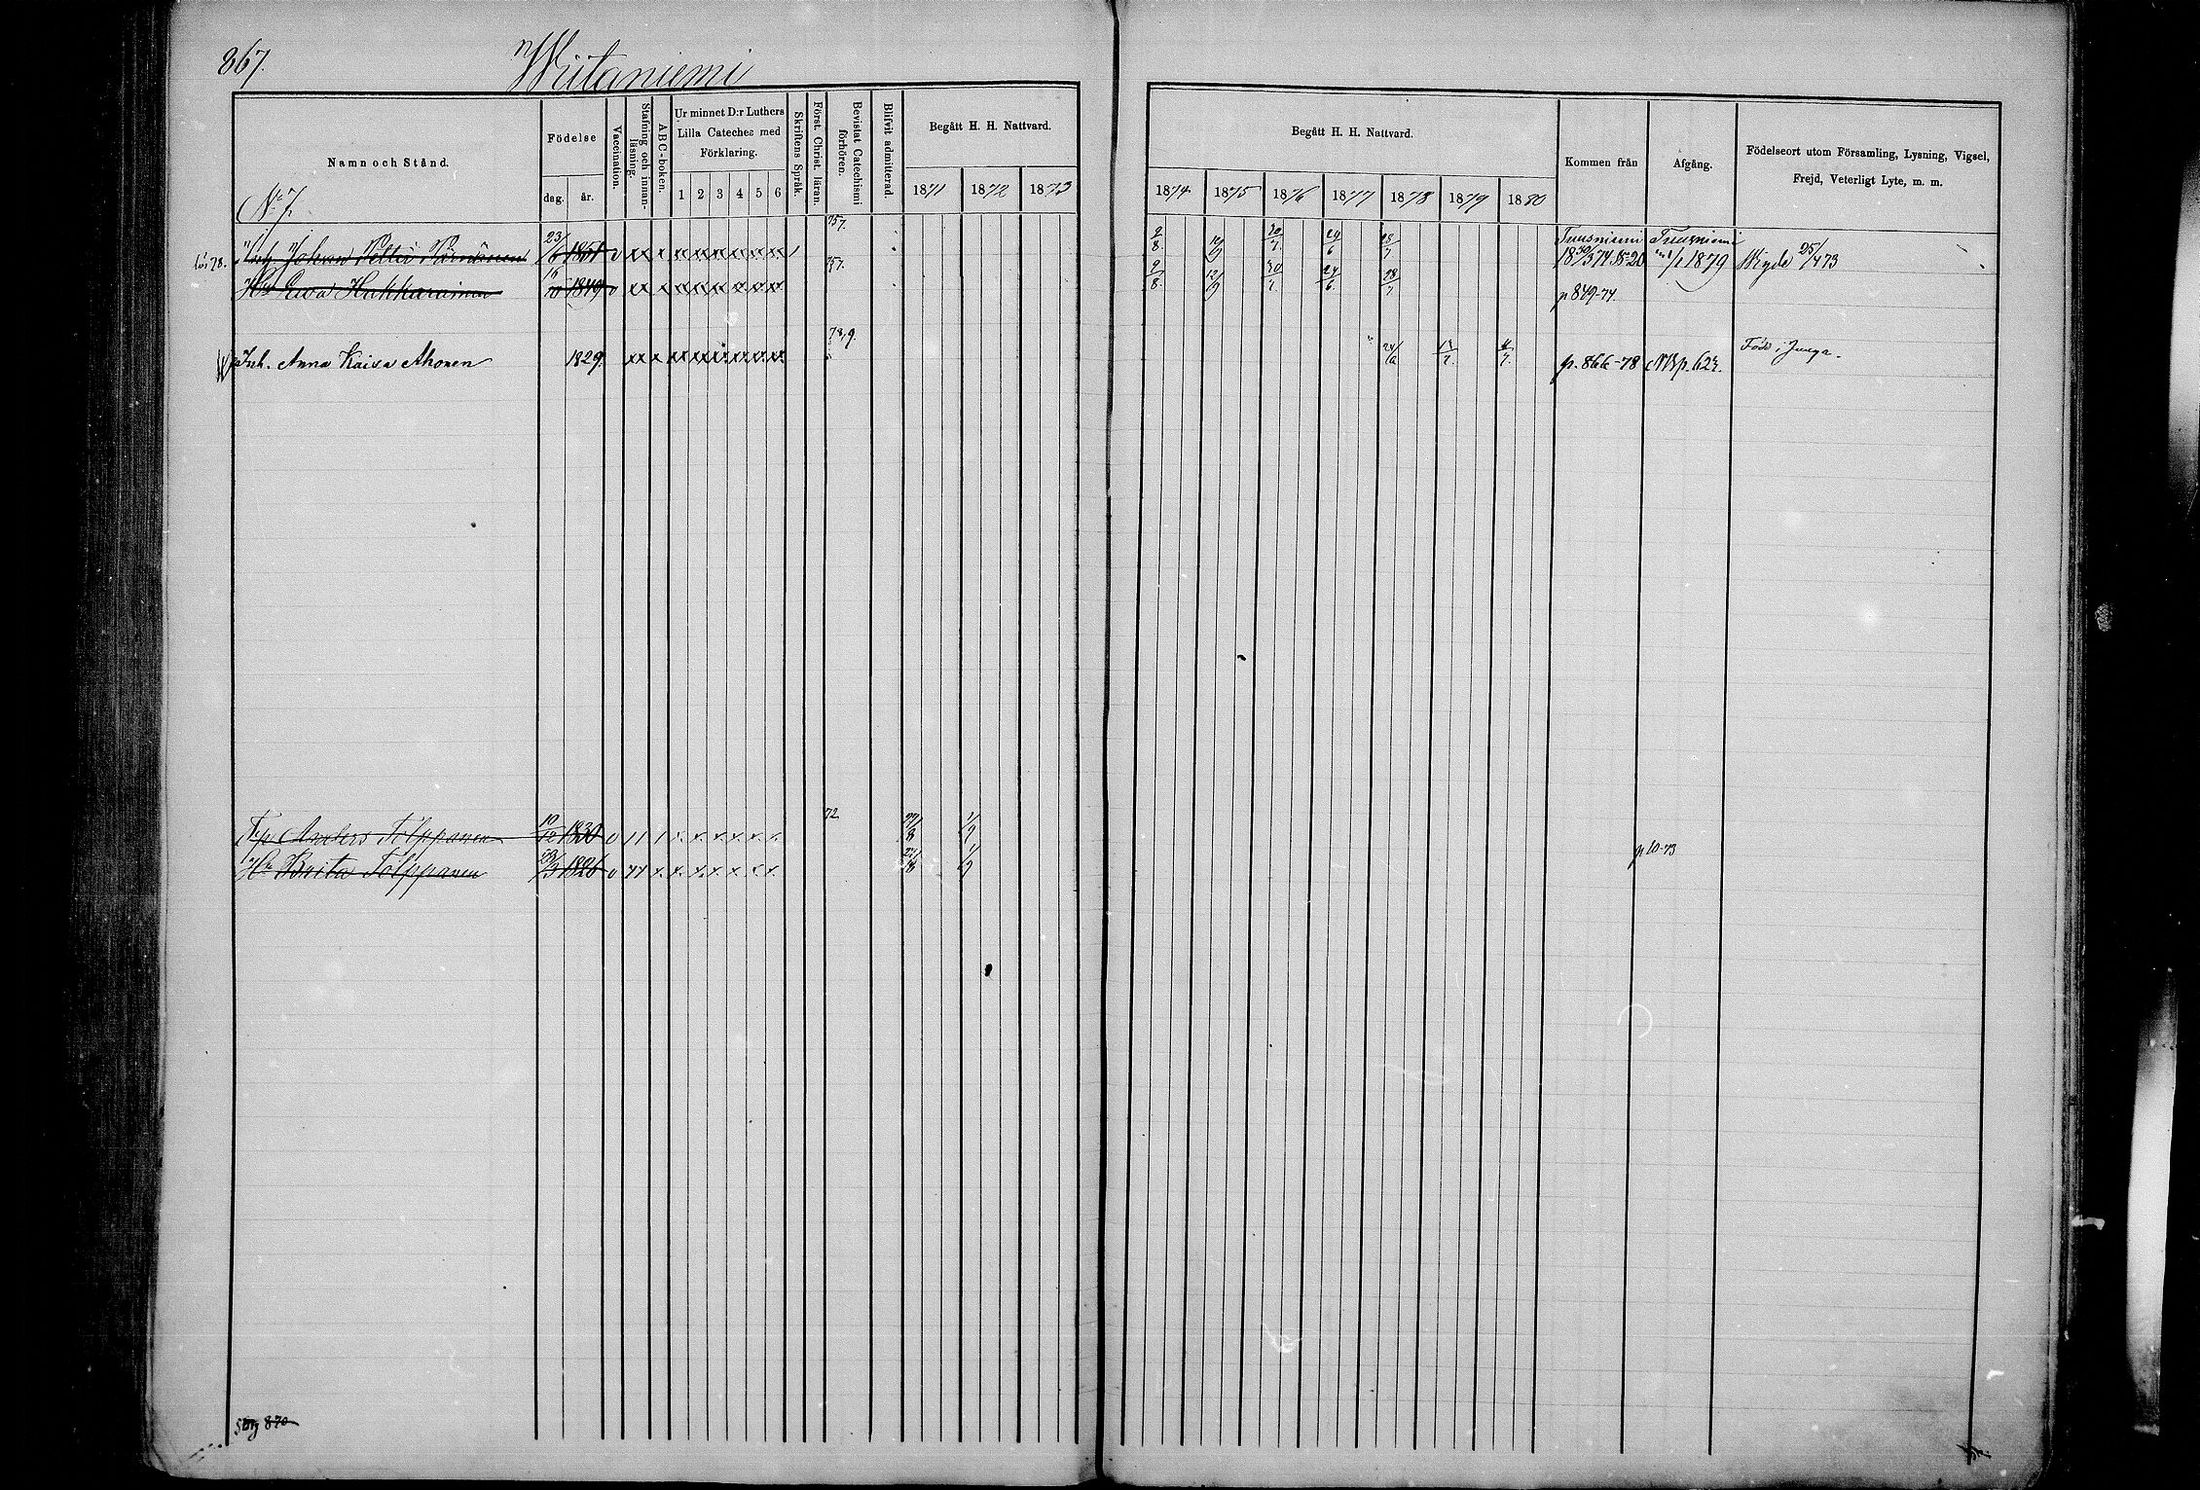 867.
Wiitaniemi
Namn och Stånd.
Födelse
dag.
år.
Vaccination.
Stafning och innan-läsning.
ABC-boken.
Ur minnet D:r Luthers Lilla Cateches med Förklaring.
1 2 3 4 5 6
Skriftens Språk.
Först. Christ. läran.
Bevistat Catechismi förhören.
Blifvit admitterad.
Begått H. H. Nattvard.
1871 1872 1873
Begått H. H. Nattvard.
1874 1875 1876 1877 1878 1879 1880
Kommen från
Afgång.
Födelseort utom Församling, Lysning, Vigsel, Frejd, Veterligt Lyte, m. m.
No 7.
Johan Petter 23/6 1851 757. 9/8. 12/9 30/7. 24/6 28/7 Tuusniemi Tuusniemi p 1879 Wigde 25/4 73
Hu Eva Hakkarainen 16/10 1849 757. 9/8. 12/9 30/7. 24/6. 28/7 p 849-74
Inh. Anna Kaisa Ahonen 1829. 78,9. 24/6 p. 866-78 Född i Juuga.
Tp Anders Tolppanen 10/12 1830 72 27/8 1/9 p 10-73
Hu Brita Tolppanen 23/3 1826 27/8 1/9
870